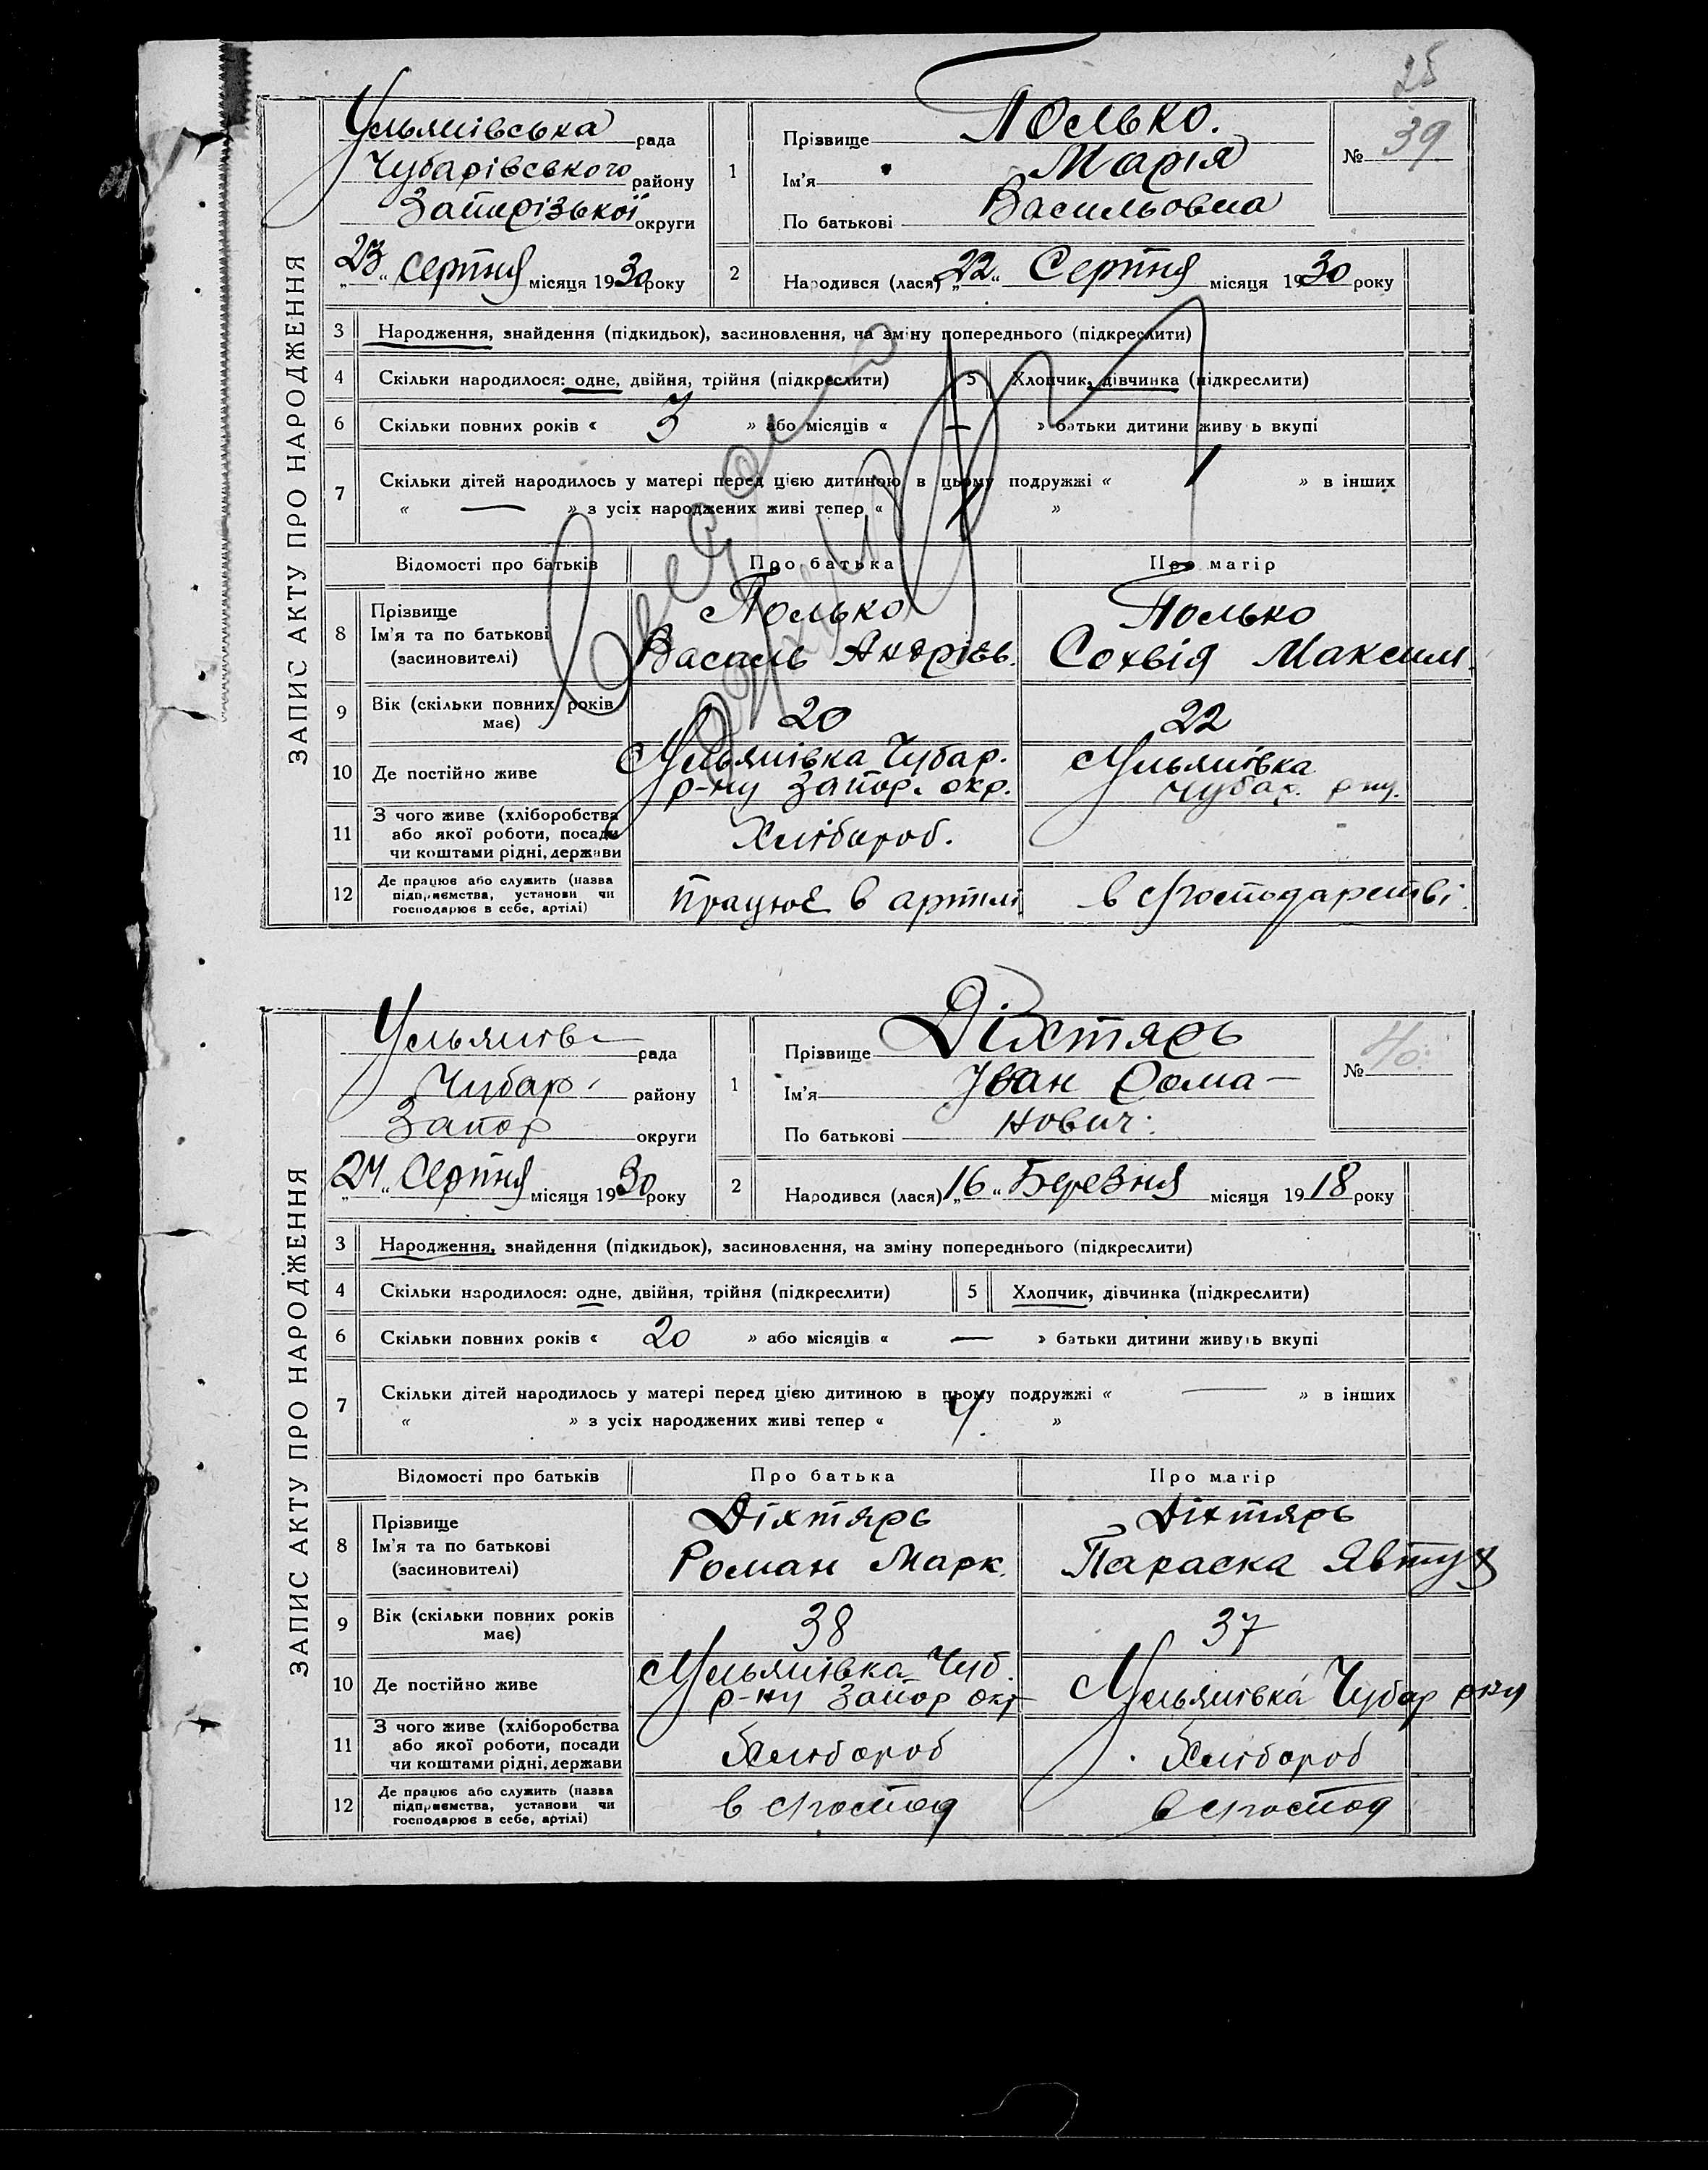 25
Ульянівська рада
Чубарівського району
Запорізької округи
„23“ серпня місяця 1930 року
1
Прізвище Полько.
Ім'я Марія
По батькові Васильовна
№ 39
2
Народився (лася) „22“ Серпня місяця 1930 року
ЗАПИС АКТУ ПРО НАРОДЖЕННЯ
3 Народження, знайдення (підкидьок), засиновлення, на зміну попереднього (підкреслити)
4 Скільки народилося: одне, двійня, трійня (підкреслити) 5 Хлопчик, дівчинка (підкреслити)
6 Скільки повних років « 3 » або місяців « — » батьки дитини живуть вкупі
7 Скільки дітей народилось у матері перед цією дитиною в цьому подружжі « 1 » в інших
« — » з усіх народжених живі тепер « 1 »
Відомості про батьків Про батька Про матір
8 Прізвище
Ім'я та по батькові
(засиновителі)
Полько
Василь Андрієв.
Полько
Сохвія Максим.
9 Вік (скільки повних років
має)
20 22
10 Де постійно живе
Ульянівка Чубар.
р-ну Запор. окр.
Ульянівка
Чубар. р-ну.
11 З чого живе (хліборобства
або якої роботи, посади
чи коштами рідні, держави
Хлібороб.
12 Де працює або служить (назва
підприємства, установи чи
господарює в себе, артілі)
Працює в артілі в господарстві.
Ульянів- рада
Чубар. району
Запор округи
„24“ Серпня місяця 1930 року
1
Прізвище Діхтярь
Ім'я Іван Рома-
По батькові нович.
№ 40.
2
Народився (лася) „16“ Березня місяця 1918 року
ЗАПИС АКТУ ПРО НАРОДЖЕННЯ
3 Народження, знайдення (підкидьок), засиновлення, на зміну попереднього (підкреслити)
4 Скільки народилося: одне, двійня, трійня (підкреслити) 5 Хлопчик, дівчинка (підкреслити)
6 Скільки повних років « 20 » або місяців « — » батьки дитини живуть вкупі
7 Скільки дітей народилось у матері перед цією дитиною в цьому подружжі « — » в інших
« » з усіх народжених живі тепер « 4 »
Відомості про батьків Про батька Про матір
8 Прізвище
Ім'я та по батькові
(засиновителі)
Діхтярь
Роман Марк.
Діхтярь
Параска Явтух
9 Вік (скільки повних років
має)
38 37
10 Де постійно живе
Ульянівка Чуб.
р-ну Запор окр
Ульянівка Чубар рну
11 З чого живе (хліборобства
або якої роботи, посади
чи коштами рідні, держави
Хлібороб Хлібороб
12 Де працює або служить (назва
підприємства, установи чи
господарює в себе, артілі)
в господ в господ